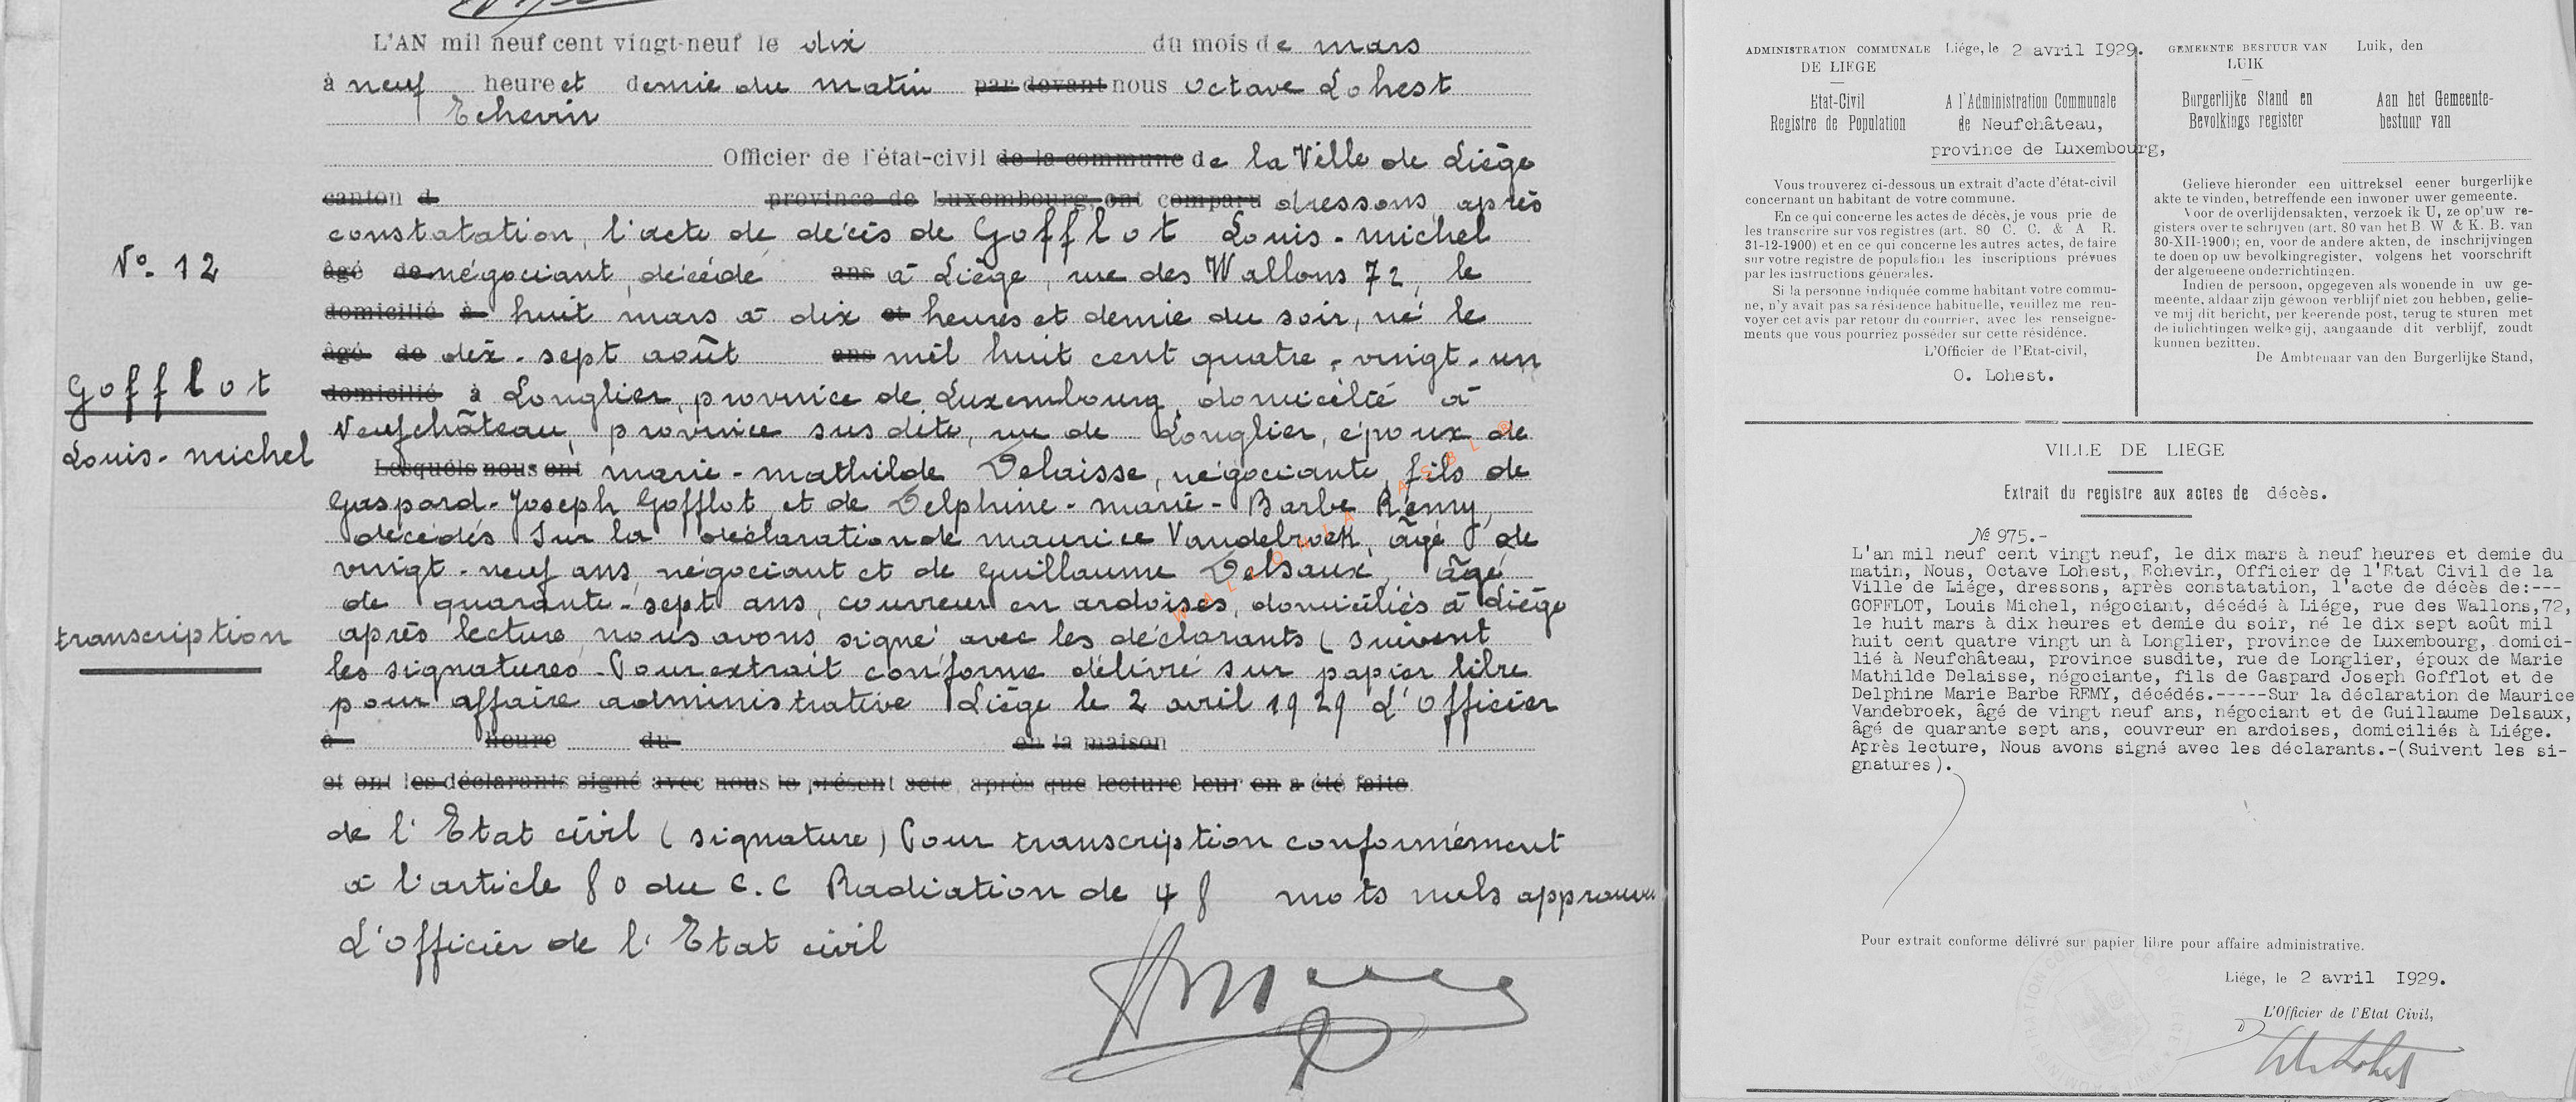 L'AN mil neuf cent vingt-neuf le dix du mois de mars
à neuf heure et demie du matin par devant nous Octave Lohest
Echevin
Officier de l'état-civil de la commune de la Ville de Liége
canton d province de Luxembourg, ont comparu dressons, après
constatation, l'acte de décès de Gofflot Louis-Michel
N° 12
âgé de négociant, décédé ans à Liége, rue des Wallons 72, le
domicilié à huit mars à dix et heures et demie du soir, né le
âgé de dix-sept août ans mil huit cent quatre-vingt-un
Gofflot
domicilié à Longlier, province de Luxembourg, domicilié à
Neufchâteau, province susdite, rue de Longlier, époux de
Louis-Michel
Lesquels nous ont Marie-Mathilde Delaisse, négociante, fils de
Gaspard-Joseph Gofflot et de Delphine-Marie-Barbe Rémy,
décédés Sur la déclaration de Maurice Vandebroek, âgé de
vingt-neuf ans, négociant et de Guillaume Delsaux, âgé
de quarante-sept ans, couvreur en ardoises, domiciliés à Liége
transcription
après lecture, nous avons signé avec les déclarants (suivent
les signatures - Pour extrait conforme délivré sur papier libre
pour affaire administrative Liége le 2 avril 1929 L'Officier
à heure du en la maison
et ont les déclarants signé avec nous le présent acte, après que lecture leur en a été faite.
de l'Etat civil (signature) Pour transcription conformément
à l'article 80 du C.C Radiation de 48 mots nuls approuvée
L'officier de l'Etat civil
ADMINISTRATION COMMUNALE
DE LIEGE
Etat-Civil
Registre de Population
Liége, le 2 avril 1929.
A l'Administration Communale
de Neufchâteau,
province de Luxembourg,
Vous trouverez ci-dessous un extrait d'acte d'état-civil
concernant un habitant de votre commune.
En ce qui concerne les actes de décès, je vous prie de
les transcrire sur vos registres (art. 80 C. C. & A R.
31-12-1900) et en ce qui concerne les autres actes, de faire
sur votre registre de population les inscriptions prévues
par les instructions générales.
Si la personne indiquée comme habitant votre commu-
ne, n'y avait pas sa résidence habituelle, veuillez me ren-
voyer cet avis par retour du courrier, avec les renseigne-
ments que vous pourriez posséder sur cette résidence.
L'Officier de l'Etat-civil,
O. Lohest.
GEMEENTE BESTUUR VAN
LUIK
Burgerlijke Stand en
Bevolkings register
Luik, den
Aan het Gemeente-
bestuur van
Gelieve hieronder een uittreksel eener burgerlijke
akte te vinden, betreffende een inwoner uwer gemeente.
Voor de overlijdensakten, verzoek ik U, ze op uw re-
gisters over te schrijven (art. 80 van het B W & K. B. van
30-XII-1900); en, voor de andere akten, de inschrijvingen
te doen op uw bevolkingregister, volgens het voorschrift
der algemeene onderrichtingen.
Indien de persoon, opgegeven als wonende in uw ge-
meente, aldaar zijn gewoon verblijf niet zou hebben, gelie-
ve mij dit bericht, per keerende post, terug te sturen met
de inlichtingen welke gij, aangaande dit verblijf, zoudt
kunnen bezitten.
De Ambtenaar van den Burgerlijke Stand,
VILLE DE LIEGE
Extrait du registre aux actes de décès.
№ 975.-
L'an mil neuf cent vingt neuf, le dix mars à neuf heures et demie du
matin, Nous, Octave Lohest, Echevin, Officier de l'Etat Civil de la
Ville de Liége, dressons, après constatation, l'acte de décès de:---
GOFFLOT, Louis Michel, négociant, décédé à Liége, rue des Wallons,72,
le huit mars à dix heures et demie du soir, né le dix sept août mil
huit cent quatre vingt un à Longlier, province de Luxembourg, domici-
lié à Neufchâteau, province susdite, rue de Longlier, époux de Marie
Mathilde Delaisse, négociante, fils de Gaspard Joseph Gofflot et de
Delphine Marie Barbe REMY, décédés.-----Sur la déclaration de Maurice
Vandebroek, âgé de vingt neuf ans, négociant et de Guillaume Delsaux,
âgé de quarante sept ans, couvreur en ardoises, domiciliés à Liége.
Après lecture, Nous avons signé avec les déclarants.-(Suivent les si-
gnatures).
Pour extrait conforme délivré sur papier libre pour affaire administrative.
Liége, le 2 avril 1929.
L'Officier de l'Etat Civil,